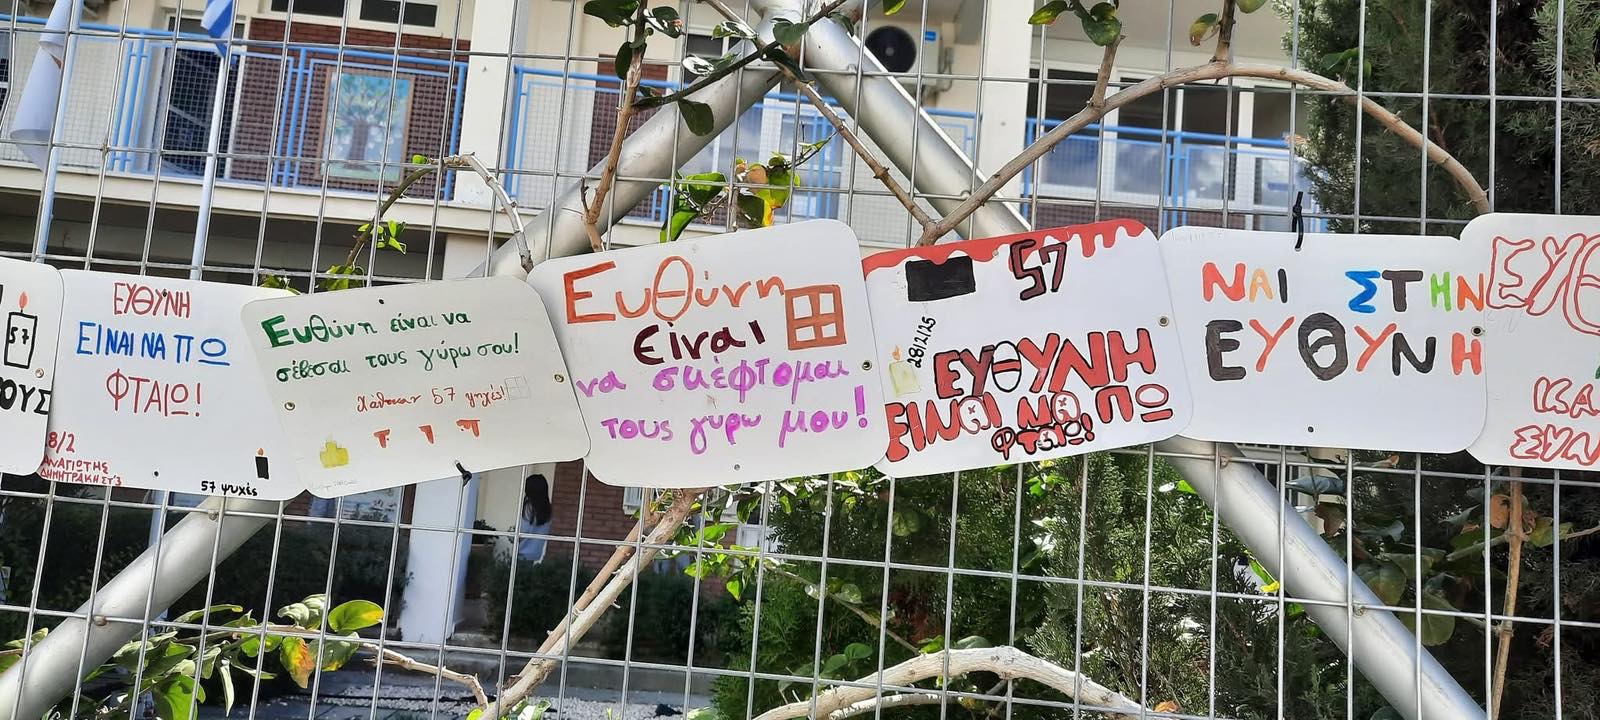 57
ΟΥΣ
ΕΥΘΥΝΗ
ΕΙΝΑΙ ΝΑ ΠΩ
ΦΤΑΙΩ!
28/2
ΠΑΝΑΓΙΩΤΗΣ
ΔΗΜΗΤΡΑΚΗ ΣΤ'3
57 ψυχές
Ευθύνη είναι να
σέβεσαι τους γύρω σου!
Χάθηκαν 57 ψυχές!
Ευθύνη
είναι
να σκέφτομαι
τους γυρω μου!
57
28/2/25
ΕΥΘΥΝΗ
ΕΙΝΑΙ ΝΑ ΠΩ
ΦΤΑΙΩ!
ΝΑΙ ΣΤΗΝ
ΕΥΘΥΝΗ
ΕΥΘ
ΚΑ
ΣΥΝ